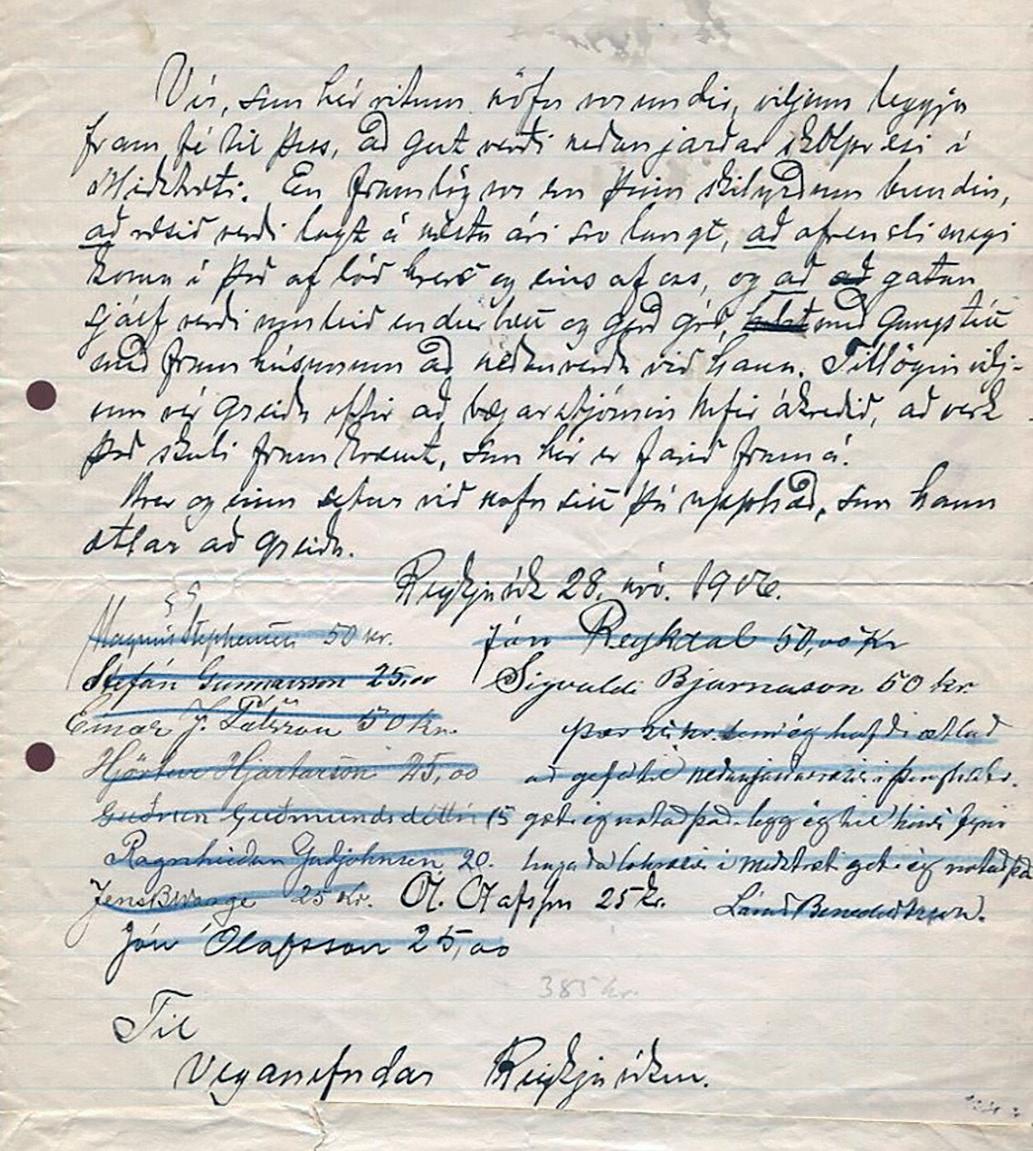 Vér, sem hér ritum nöfn vor undir, viljum leggja
fram fé til þess, að gert verði neðanjarðar skólpræsi í
Miðstræti. En framlög vor eru þeim skilyrðum bundin,
að ræsið verði lagt á næsta ári svo langt, að afrensli megi
koma í það af lóð hvers og eins af oss, og að að gatan
sjálf verði um leið endurbætt og gjörð góð, með gangstétt
með fram húsunum að neðanverðu við hana. Tillögin vilj-
um vér greiða eftir að bæjarstjórnin hefir ákveðið, að verk
það skuli framkvæmt, sem hér er farið fram á.
Hver og einn setur við nafn sitt þá upphæð, sem hann
ætlar að greiða.
Reykjavík 28. nóv. 1906.
Magnús Stephensen 50 kr. Jón Reykdal 50,00 Kr
Stefán Gunnarsson 25,00 Sigvaldi Bjarnason 50 kr.
Einar J. Pálsson 50 kr. þær 25 kr. sem ég hafði ætlað
Hjörtur Hjartarson 25,00 að gefa til neðanjarðarræsis í Þingholtsstr.
Guðrún Guðmundsdóttir 15 get eg notað það. legg ég til
Ragnheiður Guðjohnsen 20. lokræsis í Miðstræti get ég notað það
Jens B. Waage 25 Kr. Ól. Ólafsson 25 kr. Lárus Benediktsson.
Jón Ólafsson 25,00
385 kr.
Til
Veganefndar Reykjavíkur.